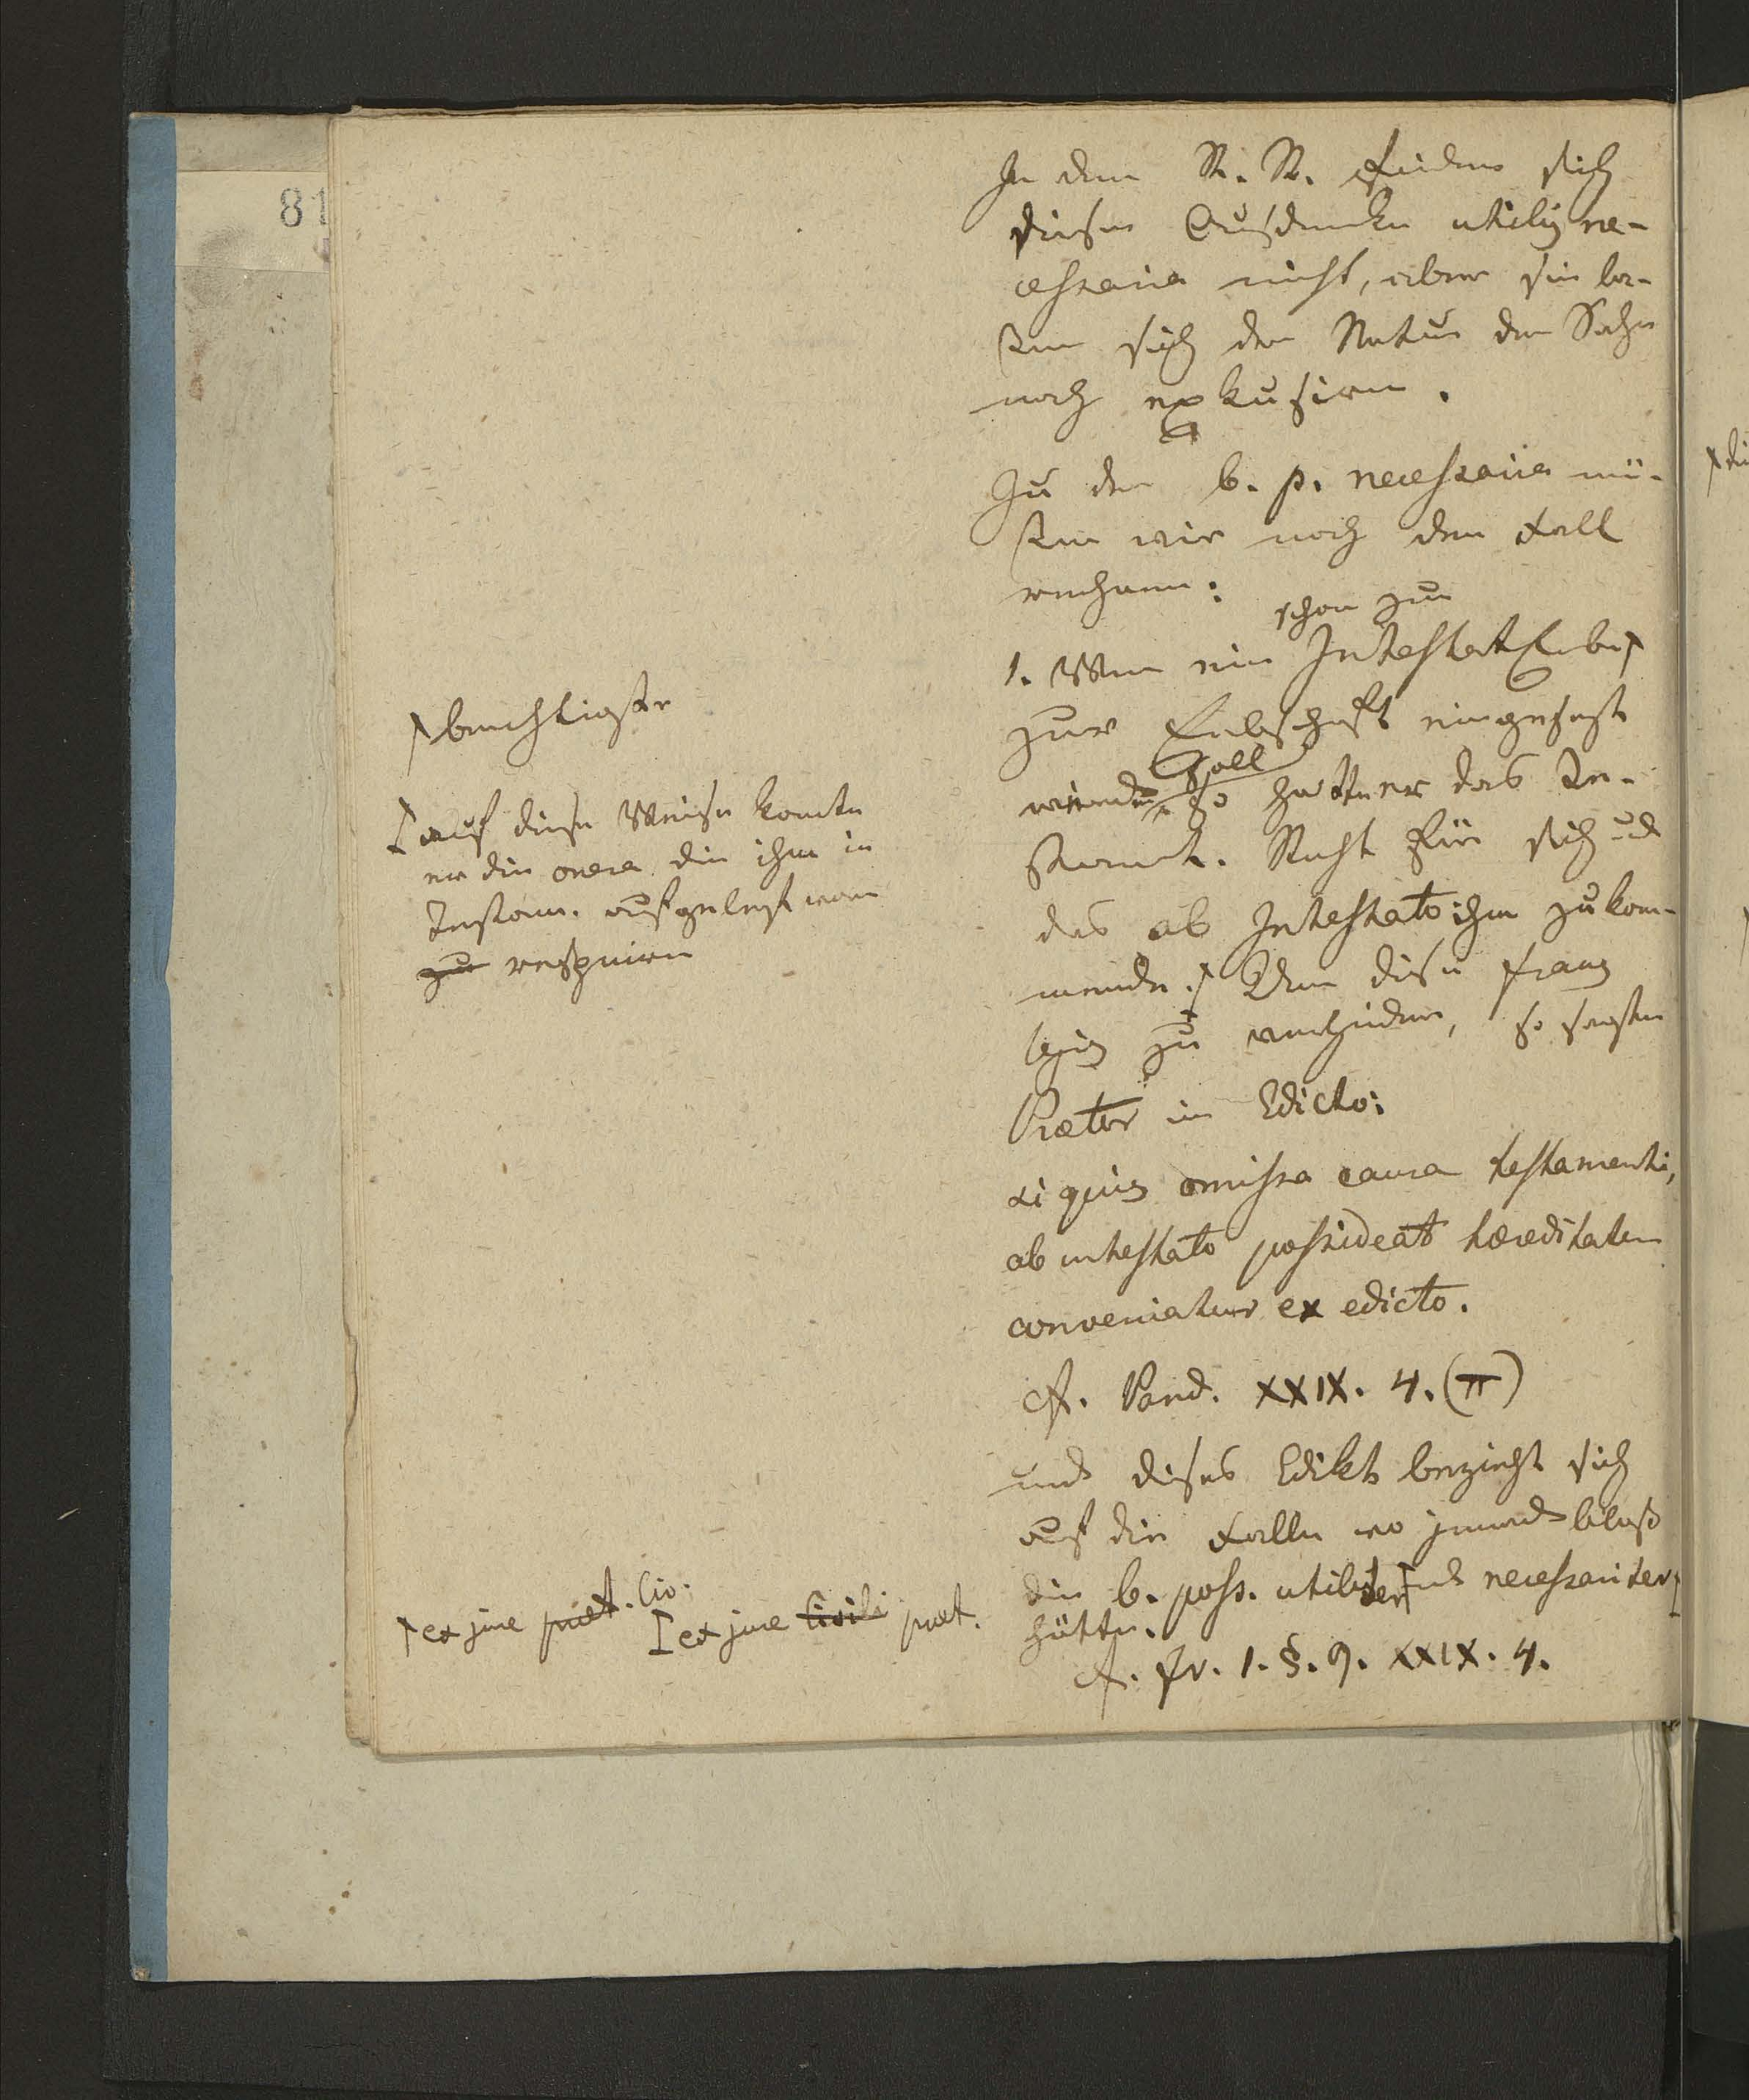 81
In dem R. R. finden sich
diese Ausdrücke utilis ne-
cessaria nicht, aber sie la-
ßen sich der Natur der Sache
nach
Zu der b. p. necessaria mü-
ßen wir noch den Fall
rechnen:
schon zur
1. Wenn ein Intestat Erbe
zur Erbschaft eingesezt
soll
werden so hatte er das Te-
stament. Recht für sich und
das ab Intestato ihm zukom-
mende. Um diese fraus
legis zu verhindern, so sagte
Praetor im Edicto:
si quis omissa causa testamenti,
ab intestato possideat hæreditatem
conveniatur ex edicto.
cf. Pand. XXIX. 4. (π)
und dieses Edikt bezieht sich
auf die Fälle wo jemand bloß
die b. poss. utiliter und necessariter
hätte.
cf. fr. 1. §. 9. XXIX. 4.
berechtigter
auf diese Weise konnte
er die onera die ihm in
Testam. auferlegt waren
zu
ex jure præt. Civ.
ex jure Civili præt.